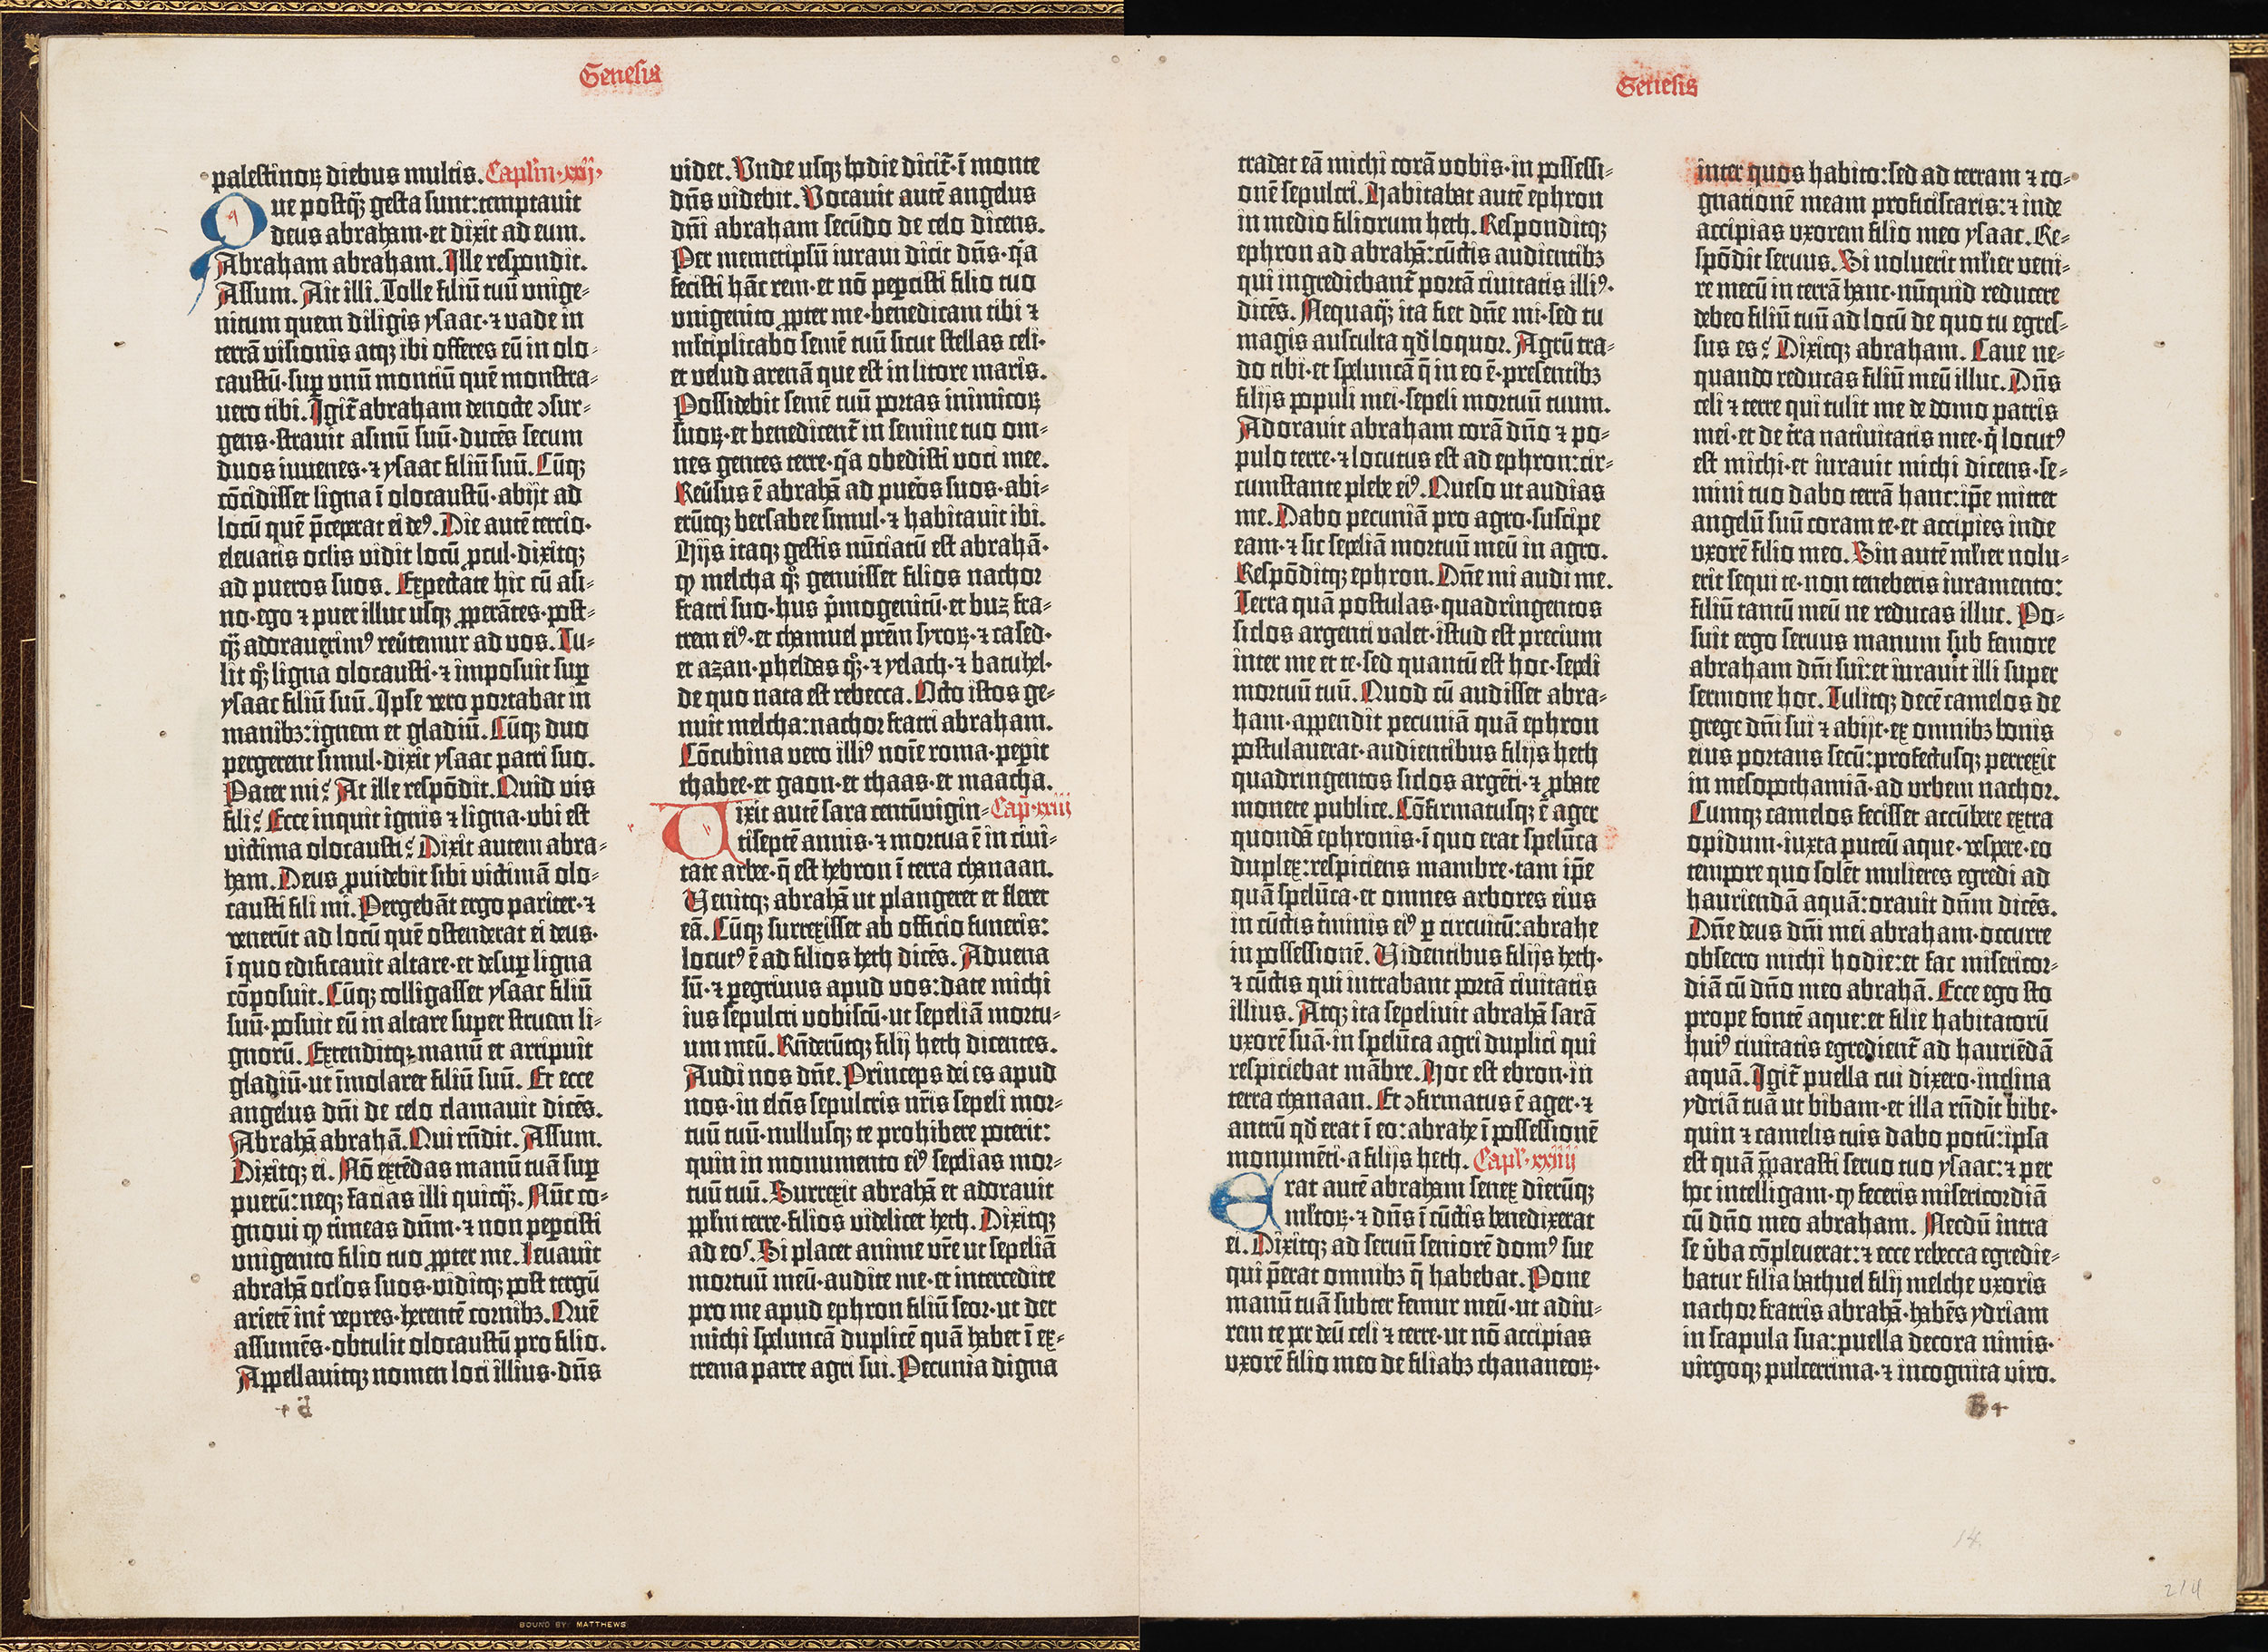 Genesis
palestinoꝝ diebus multis. Capl'm·xxij·
Que postq̃ꝫ gesta sunt:temptauit
deus abraham·et dixit ad eum.
Abraham abraham. Ille respondit.
Assum. Ait illi. Tolle filiū tuū vnige-
nitum quem diligis ysaac·⁊ vade in
terrā visionis atqꝫ ibi offeres eū in olo-
caustū·suꝑ vnū montiū quē monstra-
uero tibi. Igit̃ abraham denocte ɔsur-
gens·strauit asinū suū·ducēs secum
duos iuuenes·⁊ ysaac filiū suū. Cūqꝫ
cōcidisset ligna ī olocaustū·abijt ad
locū quē p̄ceperat ei deꝰ. Die autē tercio·
eleuatis oclis vidit locū ꝓcul·dixitqꝫ
ad pueros suos. Expectate hic cū asi-
no·ego ⁊ puer illuc usqꝫ ꝓperātes·post-
q̃ꝫ adorauerimꝰ reūtemur ad vos. Tu-
lit qͦꝫ ligna olocausti·⁊ imposuit suꝑ
ysaac filiū suū. Ipse vero portabat in
manibꝫ:ignem et gladiū. Cūqꝫ duo
pergerent simul·dixit ysaac patri suo.
Pater mi? At ille respōdit. Quid vis
fili? Ecce inquit ignis ⁊ ligna·vbi est
victima olocausti? Dixit autem abra-
ham. Deus ꝓuidebit sibi victimā olo-
causti fili mi. Pergebāt ergo pariter·⁊
venerūt ad locū quē ostenderat ei deus·
ī quo edificauit altare·et desuꝑ ligna
cōposuit. Cūqꝫ colligasset ysaac filiū
suū·posuit eū in altare super struem li-
gnorū. Extenditqꝫ manū et arripuit
gladiū·ut īmolaret filiū suū. Et ecce
angelus dn̄i de celo clamauit dicēs.
Abrahā abrahā. Qui rn̄dit. Assum.
Dixitqꝫ ei. Nō extēdas manū tuā suꝑ
puerū:neqꝫ facias illi quicq̃ꝫ. Nūc co-
gnoui ꝙ timeas dn̄m·⁊ non peꝑcisti
vnigenito filio tuo ꝓpter me. Leuauit
abrahā oc'los suos·viditqꝫ post tergū
arietē int̃ vepres·herentē cornibꝫ. Quē
assumēs·obtulit olocaustū pro filio.
Appellauitqꝫ nomen loci illius·dn̄s
videt. Vnde usqꝫ hodie dicit̃·ī monte
dn̄s videbit. Vocauit autē angelus
dn̄i abraham secūdo de celo dicens.
Per memetipsū iuraui dicit dn̄s·q̄a
fecisti hāc rem·et nō peꝑcisti filio tuo
vnigenito ꝓpter me·benedicam tibi ⁊
ml'tiplicabo semē tuū sicut stellas celi·
et velud arenā que est in litore maris.
Possidebit semē tuū portas inimicoꝝ
suoꝝ·et benedicent̃ in semine tuo om-
nes gentes terre·q̄a obedisti voci mee.
Reūsus ē abrahā ad pueros suos·abi-
erūtqꝫ bersabee simul·⁊ habitauit ibi.
Hijs itaqꝫ gestis nūciatū est abrahā·
ꝙ melcha qͦꝫ genuisset filios nachor
fratri suo·hus pͥmogenitū·et buz fra-
trem eiꝰ·et chamuel prēm syroꝝ·⁊ cased·
et azan·pheldas qͦꝫ·⁊ yedlach·⁊ batuhel·
de quo nata est rebecca. Octo istos ge-
nuit melcha:nachor fratri abraham.
Cōcubina vero illiꝰ noīe roma·peꝑit
thabee·et gaon·et thaas·et maacha.
Vixit autē sara centūvigin- Cap̄·xxiij
tiseptē annis·⁊ mortua ē in ciui-
tate arbee·q̄ est hebron ī terra chanaan.
Venitqꝫ abrahā ut plangeret et fleret
eā. Cūqꝫ surrexisset ab officio funeris:
locutꝰ ē ad filios heth dicēs. Aduena
sū·⁊ ꝑegrinus apud vos:date michi
ius sepulcri vobiscū·ut sepeliā mortu-
um meū. Rn̄derūtqꝫ filij heth dicentes.
Audi nos dn̄e. Princeps dei es apud
nos·in elc̄is sepulcris nr̄is sepeli mor-
tuū tuū·nullusqꝫ te prohibere poterit:
quin in monumento eiꝰ sepelias mor-
tuū tuū. Surrexit abrahā et adorauit
ppl'm terre·filios videlicet heth. Dixitqꝫ
ad eos. Si placet anime vr̄e ut sepeliā
mortuū meū·audite me·et intercedite
pro me apud ephron filiū seor·ut det
michi speluncā duplicē quā habet ī ex-
trema parte agri sui. Pecunia digna
Genesis
tradat eā michi corā vobis·in possessi-
onē sepulcri. Habitabat autē ephron
in medio filiorum heth. Responditqꝫ
ephron ad abrahā:cūctis audientibꝫ
qui ingrediebant̃ portā ciuitatis illiꝰ·
dicēs. Nequaq̃ꝫ ita fiet dn̄e mi·sed tu
magis ausculta qd̄ loquor. Agrū tra-
do tibi·et speluncā q̄ in eo ē·presentibꝫ
filijs populi mei·sepeli mortuū tuum.
Adorauit abraham corā dn̄o ⁊ po-
pulo terre·⁊ locutus est ad ephron:cir-
cumstante plebe eiꝰ. Queso ut audias
me. Dabo pecuniā pro agro·suscipe
eam·⁊ sic sepeliā mortuū meū in agro.
Respōditqꝫ ephron. Dn̄e mi audi me.
Terra quā postulas·quadringentos
siclos argenti valet·istud est precium
inter me et te·sed quantū est hoc·sepeli
mortuū tuū. Quod cū audisset abra-
ham·appendit pecuniā quā ephron
postulauerat·audientibus filijs heth
quadringentos siclos argēti·⁊ ꝓbate
monete publice. Cōfirmatusqꝫ ē ager
quondā ephronis·ī quo erat spelūca
duplex:respiciens mambre·tam ip̄e
quā spelūca·et omnes arbores eius
in cūctis t̄minis eiꝰ ꝑ circuitū:abrahe
in possessionē. Videntibus filijs heth·
⁊ cūctis qui intrabant portā ciuitatis
illius. Atqꝫ ita sepeliuit abrahā sarā
vxorē suā·in spelūca agri duplici qui
respiciebat mābre. Hoc est ebron·in
terra chanaan. Et ɔfirmatus ē ager·⁊
antrū qd̄ erat ī eo:abrahe ī possessionē
monumēti·a filijs heth. Capl'·xxiiij
Erat autē abraham senex dierūqꝫ
ml'toꝝ·⁊ dn̄s ī cūctis benedixerat
ei. Dixitqꝫ ad seruū seniorē domꝰ sue
qui p̄erat omnibꝫ q̄ habebat. Pone
manū tuā subter femur meū·ut adiu-
rem te per deū celi ⁊ terre·ut nō accipias
vxorē filio meo de filiabꝫ chananeoꝝ·
inter quos habito:sed ad terram ⁊ co-
gnationē meam proficiscaris:⁊ inde
accipias vxorem filio meo ysaac. Re-
spōdit seruus. Si noluerit ml'ier veni-
re mecū in terrā hanc·nūquid reducere
debeo filiū tuū ad locū de quo tu egres-
sus es? Dixitqꝫ abraham. Caue ne-
quando reducas filiū meū illuc. Dn̄s
celi ⁊ terre qui tulit me de domo patris
mei·et de t̄ra natiuitatis mee·qͥ locutꝰ
est michi·et iurauit michi dicens·se-
mini tuo dabo terrā hanc:ip̄e mittet
angelū suū coram te·et accipies inde
vxorē filio meo. Sin autē ml'ier nolu-
erit sequi te·non teneberis iuramento:
filiū tantū meū ne reducas illuc. Po-
suit ergo seruus manum sub femore
abraham dn̄i sui:et iurauit illi super
sermone hoc. Tulitqꝫ decē camelos de
grege dn̄i sui ⁊ abijt·ex omnibꝫ bonis
eius portans secū:profectusqꝫ perrexit
in mesopothamiā·ad vrbem nachor.
Cumqꝫ camelos fecisset accūbere extra
opidum·iuxta puteū aque·vespere·eo
tempore quo solēt mulieres egredi ad
hauriendā aquā:orauit dn̄m dicēs.
Dn̄e deus dn̄i mei abraham·occurre
obsecro michi hodie:et fac misericor-
diā cū dn̄o meo abrahā. Ecce ego sto
prope fontē aque:et filie habitatorū
huiꝰ ciuitatis egredient̃ ad hauriēdā
aquā. Igit̃ puella cui dixero·inclina
ydriā tuā ut bibam·et illa rn̄dit bibe·
quin ⁊ camelis tuis dabo potū:ipsa
est quā p̄parasti seruo tuo ysaac:⁊ per
hoc intelligam·ꝙ feceris misericordiā
cū dn̄o meo abraham. Necdū intra
se v̄ba cōpleuerat:⁊ ecce rebecca egredie-
batur filia bathuel filij melche vxoris
nachor fratris abrahā·habēs ydriam
in scapula sua:puella decora nimis·
virgoqꝫ pulcerrima·⁊ incognita viro.
14
214
BOUND BY MATTHEWS